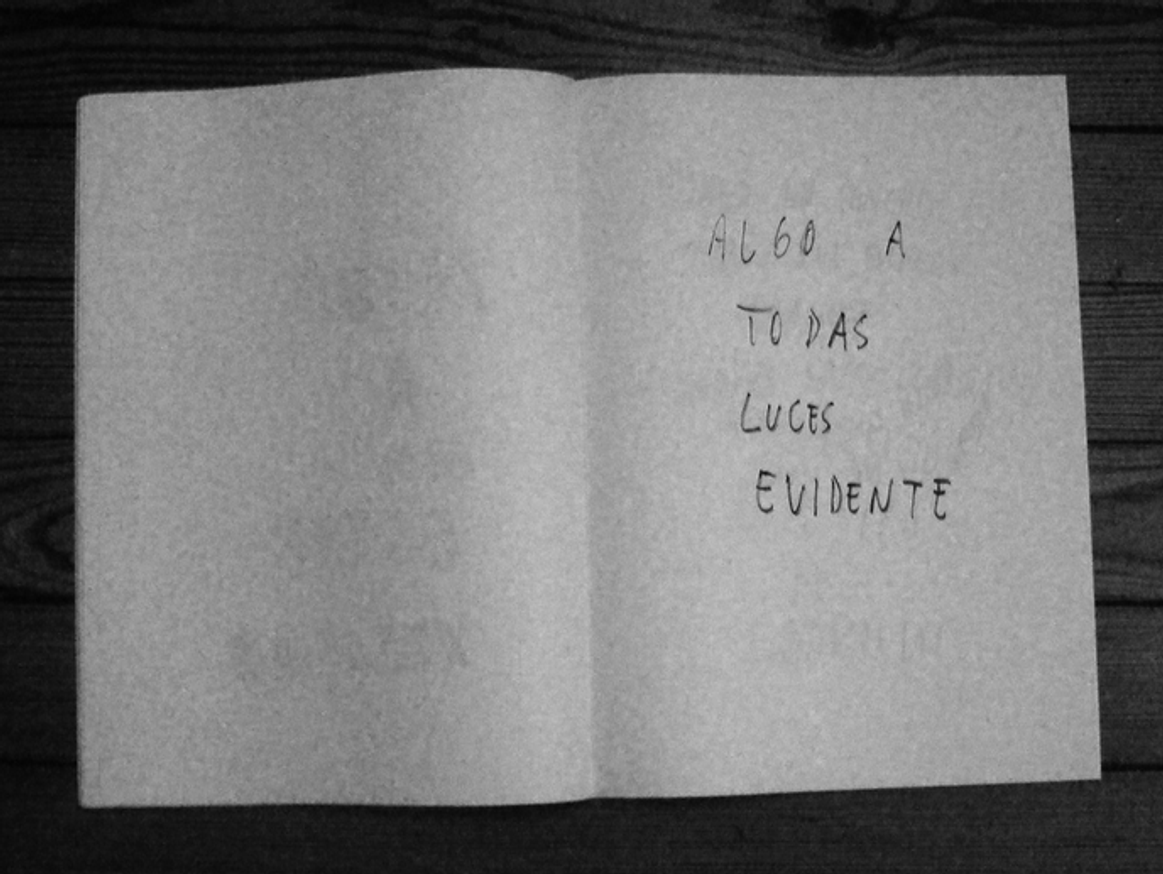 ALGO A
TODAS
LUCES
EVIDENTE